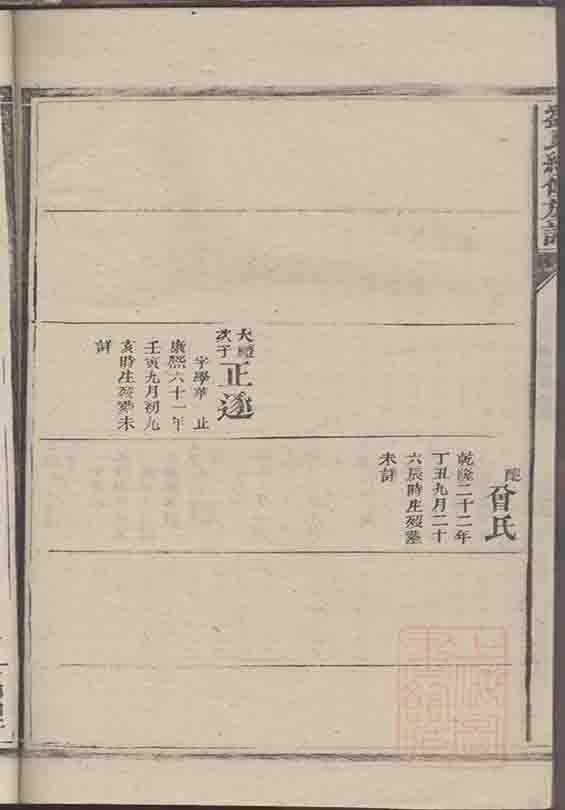 配
曾氏
乾隆二十二年
丁丑九月二十
六辰時生歿塟
未詳
大
次子
正遂
字學華 止
康熙六十一年
壬寅九月初九
亥時生歿塟未
詳
氏續修族譜